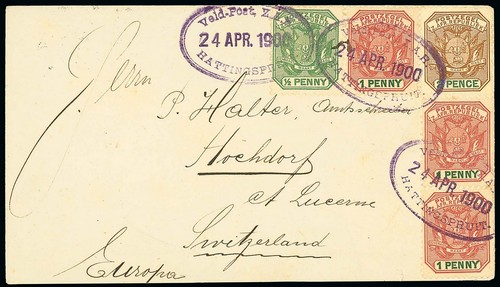 Veld-Post, Z.A.R.
24 APR. 1900
HATTINGSPRUIT.
½ PENNY
24 APR. 1900
HATTINGSPRUIT.
1 PENNY
PENCE
Herrn
P. Halter, Amtsschreiber
Hochdorf
Ct Lucerne
Switzerland
Europa
1 PENNY
24 APR. 1900
HATTINGSPRUIT.
1 PENNY